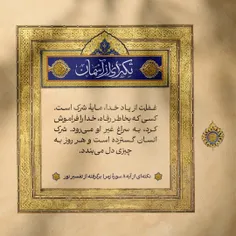 تکیه‌ای از آسمان
غفلت از یاد خدا، مایهٔ شرک است.
کسی که بخاطر رفاه، خدا را فراموش
کرد، به سراغ غیر او می‌رود. شرک
انسان گسترده است و هر روز به
چیزی دل می‌بندد.
نکته‌ای از آیهٔ ۸ سورهٔ زمر؛ برگرفته از تفسیر نور